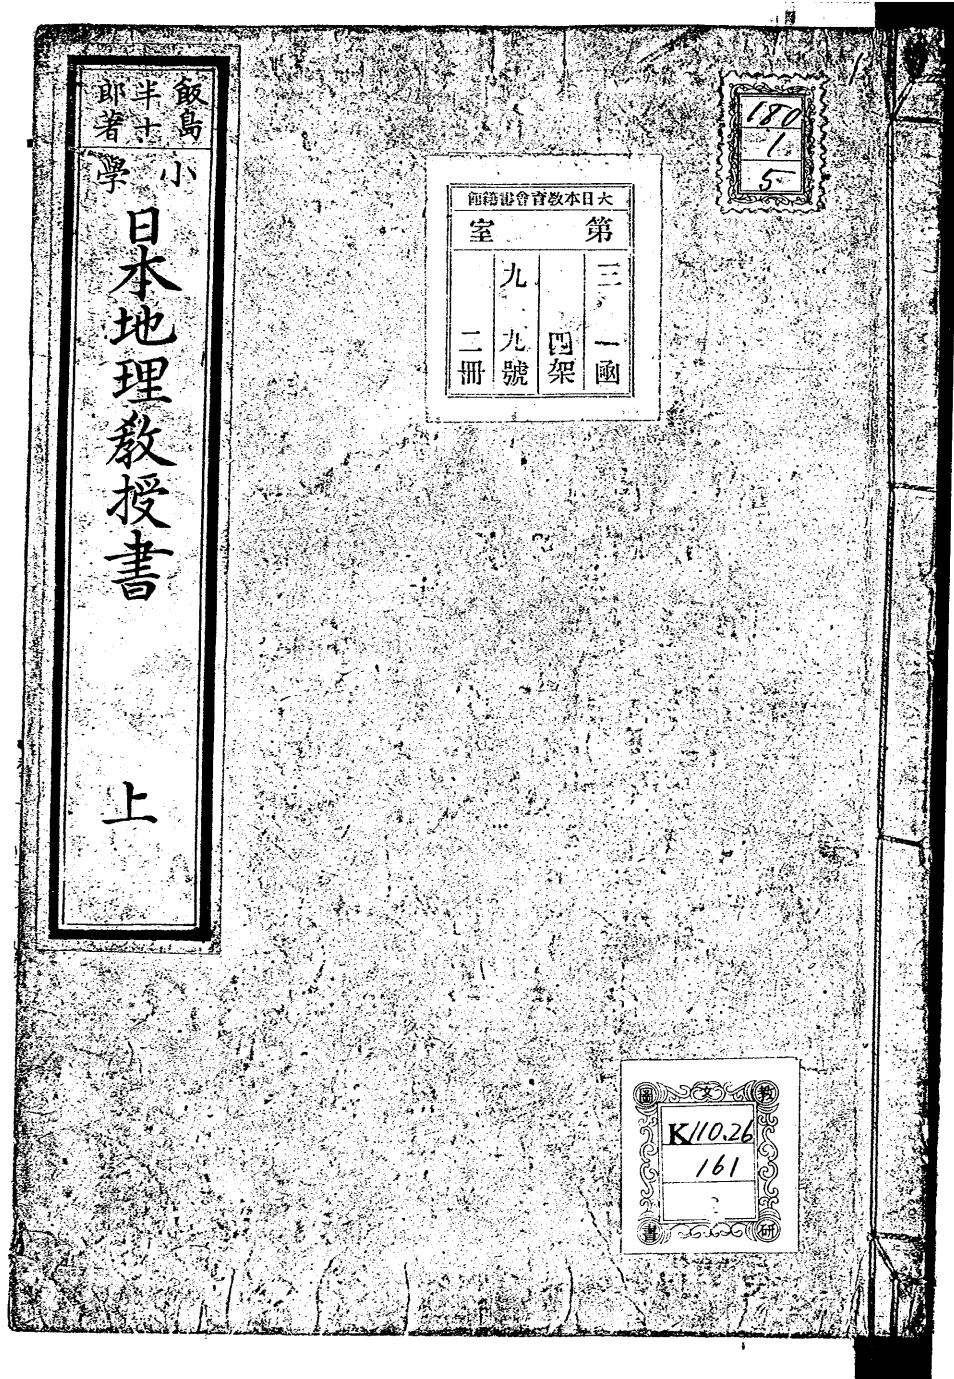 飯島
半十
郎著
小學
日本地理教授書
上
大日本教育會書籍館
第室
三一凾
四架
九九號
二冊
180
1
5
教文圖
K110.26
161
研書